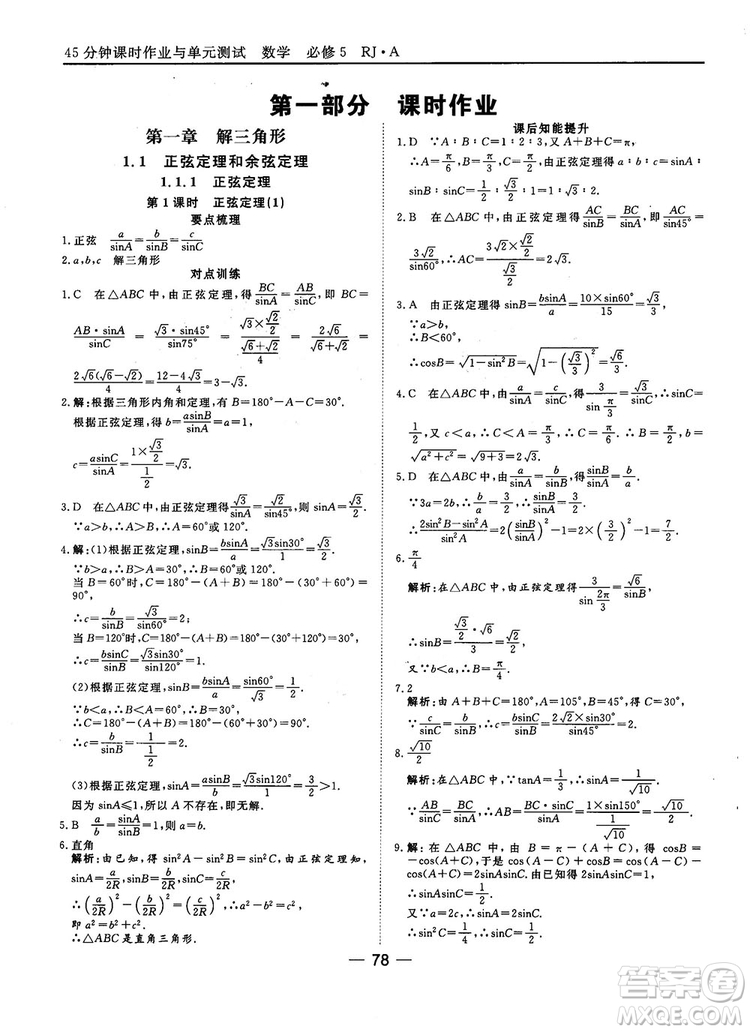 45分钟课时作业与单元测试 数学 必修5 RJ·A
第一部分 课时作业
第一章 解三角形
1.1 正弦定理和余弦定理
1.1.1 正弦定理
第1课时 正弦定理(1)
要点梳理
1.正弦 a/sinA=b/sinB=c/sinC
2.a,b,c 解三角形
对点训练
1.C 在△ABC中,由正弦定理,得BC/sinA=AB/sinC,∴BC=
AB·sinA/sinC=√3sin45°/sin75°=(√3×√2/2)/((√6+√2)/4)=2√6/(√6+√2)=
2√6(√6-√2)/4=(12-4√3)/4=3-√3.
2.解:根据三角形内角和定理,得B=180°-(A+C)=30°.
根据正弦定理,得b=asinB/sinA=1,
c=asinC/sinA=(1×√3/2)/(1/2)=√3.
3.D 在△ABC中,由正弦定理得√3/sinA=√2/sin45°,则sinA=√3/2.
∵a>b,∴A>B,∴A=60°或120°.
4.解:(1)根据正弦定理,sinB=bsinA/a=√3sin30°/1=√3/2.
∵b>a,∴B>A=30°,∴B=60°或120°.
当B=60°时,C=180°-(A+B)=180°-(30°+60°)=
90°,
∴c=b/sinB=√3/(√3/2)=2;
当B=120°时,C=180°-(A+B)=180°-(30°+120°)=30°,
∴c=a=1.
(2)根据正弦定理,sinB=bsinA/a=1·sin60°/√3=1/2.
∵b<a,∴B<A=60°,∴B=30°,
∴C=180°-(A+B)=180°-(60°+30°)=90°.
∴c=b/sinB=1/(1/2)=2.
(3)根据正弦定理,sinA=asinB/b=√3sin120°/1=3/2>1.
因为sinA≤1,所以A不存在,即无解.
5.B a/sinA=b/sinB=1,故a=b.
6.直角
解析:由已知,得sin²A-sin²B=sin²C,由正弦定理知,
sinA=a/2R,sinB=b/2R,sinC=c/2R,
∴(a/2R)²-(b/2R)²=(c/2R)²,
即a²-b²=c²,故b²+c²=a²,
∴△ABC是直角三角形.
课后知能提升
1.D ∵A∶B∶C=1∶2∶3,又A+B+C=π,
∴A=π/6,B=π/3,C=π/2.由正弦定理a∶b∶c=sinA∶
sinB∶sinC=1/2∶√3/2∶1=1∶√3∶2.
2.B 在△ABC中,由正弦定理得AC/sinB=BC/sinA,即AC/sin45°
=3√2/sin60°,∴AC=(3√2×√2/2)/(√3/2)=2√3.
3.A 在△ABC中,由正弦定理得sinB=bsinA/a=10×sin60°/15=√3/3.
∵a>b,
∴B<60°,
∴cosB=√(1-sin²B)=√(1-(√3/3)²)=√6/3.
4.C 在△ABC中,由正弦定理得a/sinA=c/sin(π/3),∴sinC=
1/2,又c<a,∴C<A,∴C=π/6,∴B=π/2,∴b=
√(a²+c²)=√(9+3)=2√3.
5.D 在△ABC中,由正弦定理得sinB/sinA=b/a,
∵3a=2b,∴b/a=3/2,∴sinB/sinA=3/2,
∴(2sin²B-sin²A)/sin²A=2(sinB/sinA)²-1=2×9/4-1=7/2.
6.π/4
解析:在△ABC中,由正弦定理得3/sin(2π/3)=√6/sinB,
∴sinB=(√3/2·√6)/3=√2/2,
又∵b<a,∴B<A,∴B=π/4.
7.2
解析:由A+B+C=180°,A=105°,B=45°,得C=30°,
∵c/sinC=b/sinB,∴c=bsinC/sinB=2√2×sin30°/sin45°=2.
8.√10/2
解析:在△ABC中,∵tanA=1/3,∴sinA=1/√10,
∵AB/sinC=BC/sinA,∴AB=BC·sinC/sinA=1×sin150°/(1/√10)=√10/2.
9.解:在△ABC中,由B=π-(A+C),得cosB=
-cos(A+C),于是cos(A-C)+cosB=cos(A-C)
-cos(A+C)=2sinAsinC=1,
∴sinAsinC=1/2.
又a=2c,∴sinA=2sinC,
∴2sin²C=1/2,∴sinC=1/2.
78